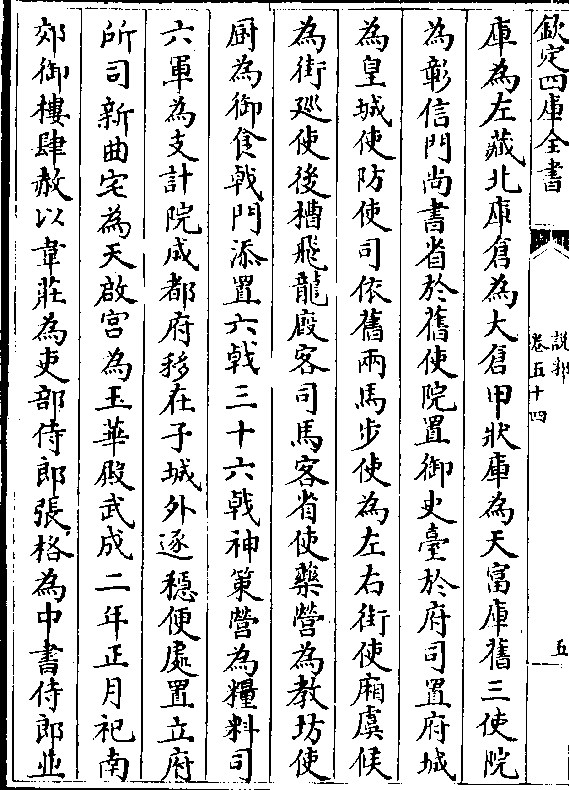 欽定四庫全書
說郛
卷五十四
五
庫為左藏北庫倉為大倉甲狀庫為天富庫舊三使院
為彰信門尚書省於舊使院置御史臺於府司置府城
為皇城使防使司依舊兩馬步使為左右街使廂虞候
為街廵使後槽飛龍廐客司馬客省使樂營為教坊使
厨為御食㦸門添置六㦸三十六㦸神策營為糧料司
六軍為支計院成都府移在子城外逐穩便處置立府
所司新曲宅為天啟宮為玉華殿武成二年正月祀南
郊御樓肆赦以韋莊為吏部侍郎張格為中書侍郎並